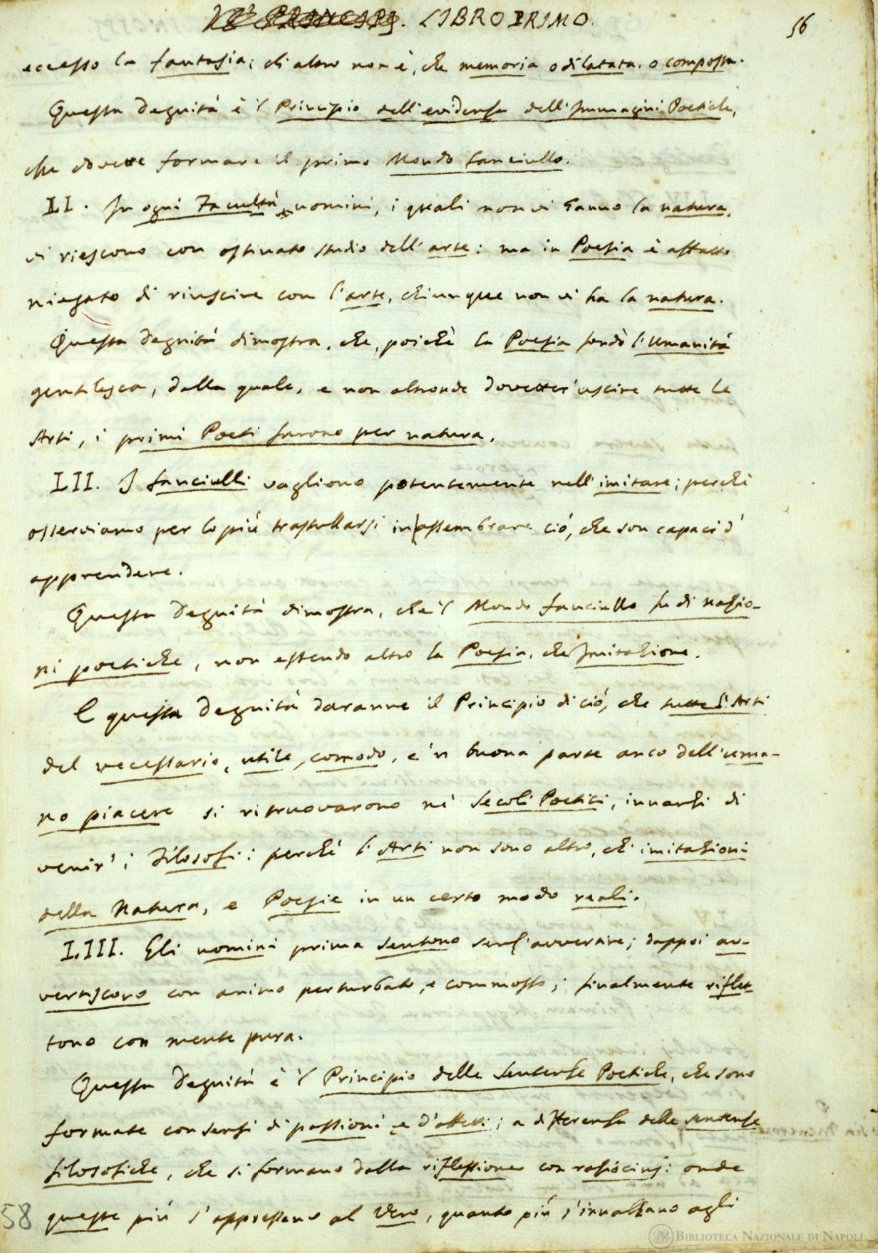 LIBRO PRIMO. 56
eccesso la fantasia; ch'altro non è, che memoria o dilatata, o composta.
Questa Degnità è 'l Principio dell'evidenza dell'Immagini Poetiche,
che dovette formare il primo Mondo fanciullo.
LI. In ogni Facultà uomini, i quali non vi hanno la natura,
vi riescono con ostinato studio dell'arte: ma in Poesia è affatto
niegato di riuscire con l'arte, chiunque non vi ha la natura.
Questa Degnità dimostra, che, poichè la Poesia fondò l'Umanità
gentilesca, dalla quale, e non altronde dovetter'uscire tutte le
Arti, i primi Poeti furono per natura.
LII. I fanciulli vagliono potentemente nell'imitare; perchè
osserviamo per lo più trastullarsi in assembrare ciò, che son capaci d'
apprendere.
Questa Degnità dimostra, che 'l Mondo fanciullo fu di nazio-
ni poetiche, non essendo altro la Poesia, che Imitazione.
E questa Degnità daranne il Principio di ciò, che tutte l'Arti
del necessario, utile, comodo, e 'n buona parte anco dell'uma-
no piacere si ritruovarono ne' Secoli Poetici, innanzi di
venir' i Filosofi: perchè l'Arti non sono altro, ch'imitazioni
della Natura, e Poesie in un certo modo reali.
LIII. Gli uomini prima sentono senz'avvertire; dappoi av-
vertiscono con animo perturbato, e commosso; finalmente riflet-
tono con mente pura.
Questa Degnità è 'l Principio delle Sentenze Poetiche, che sono
formate con sensi di passioni, e d'affetti; a differenza delle sentenze
filosofiche, che si formano dalla riflessione con raziocinj: onde
queste più s'appressano al Vero, quanto più s'innalzano agli
58
BIBLIOTECA NAZIONALE DI NAPOLI